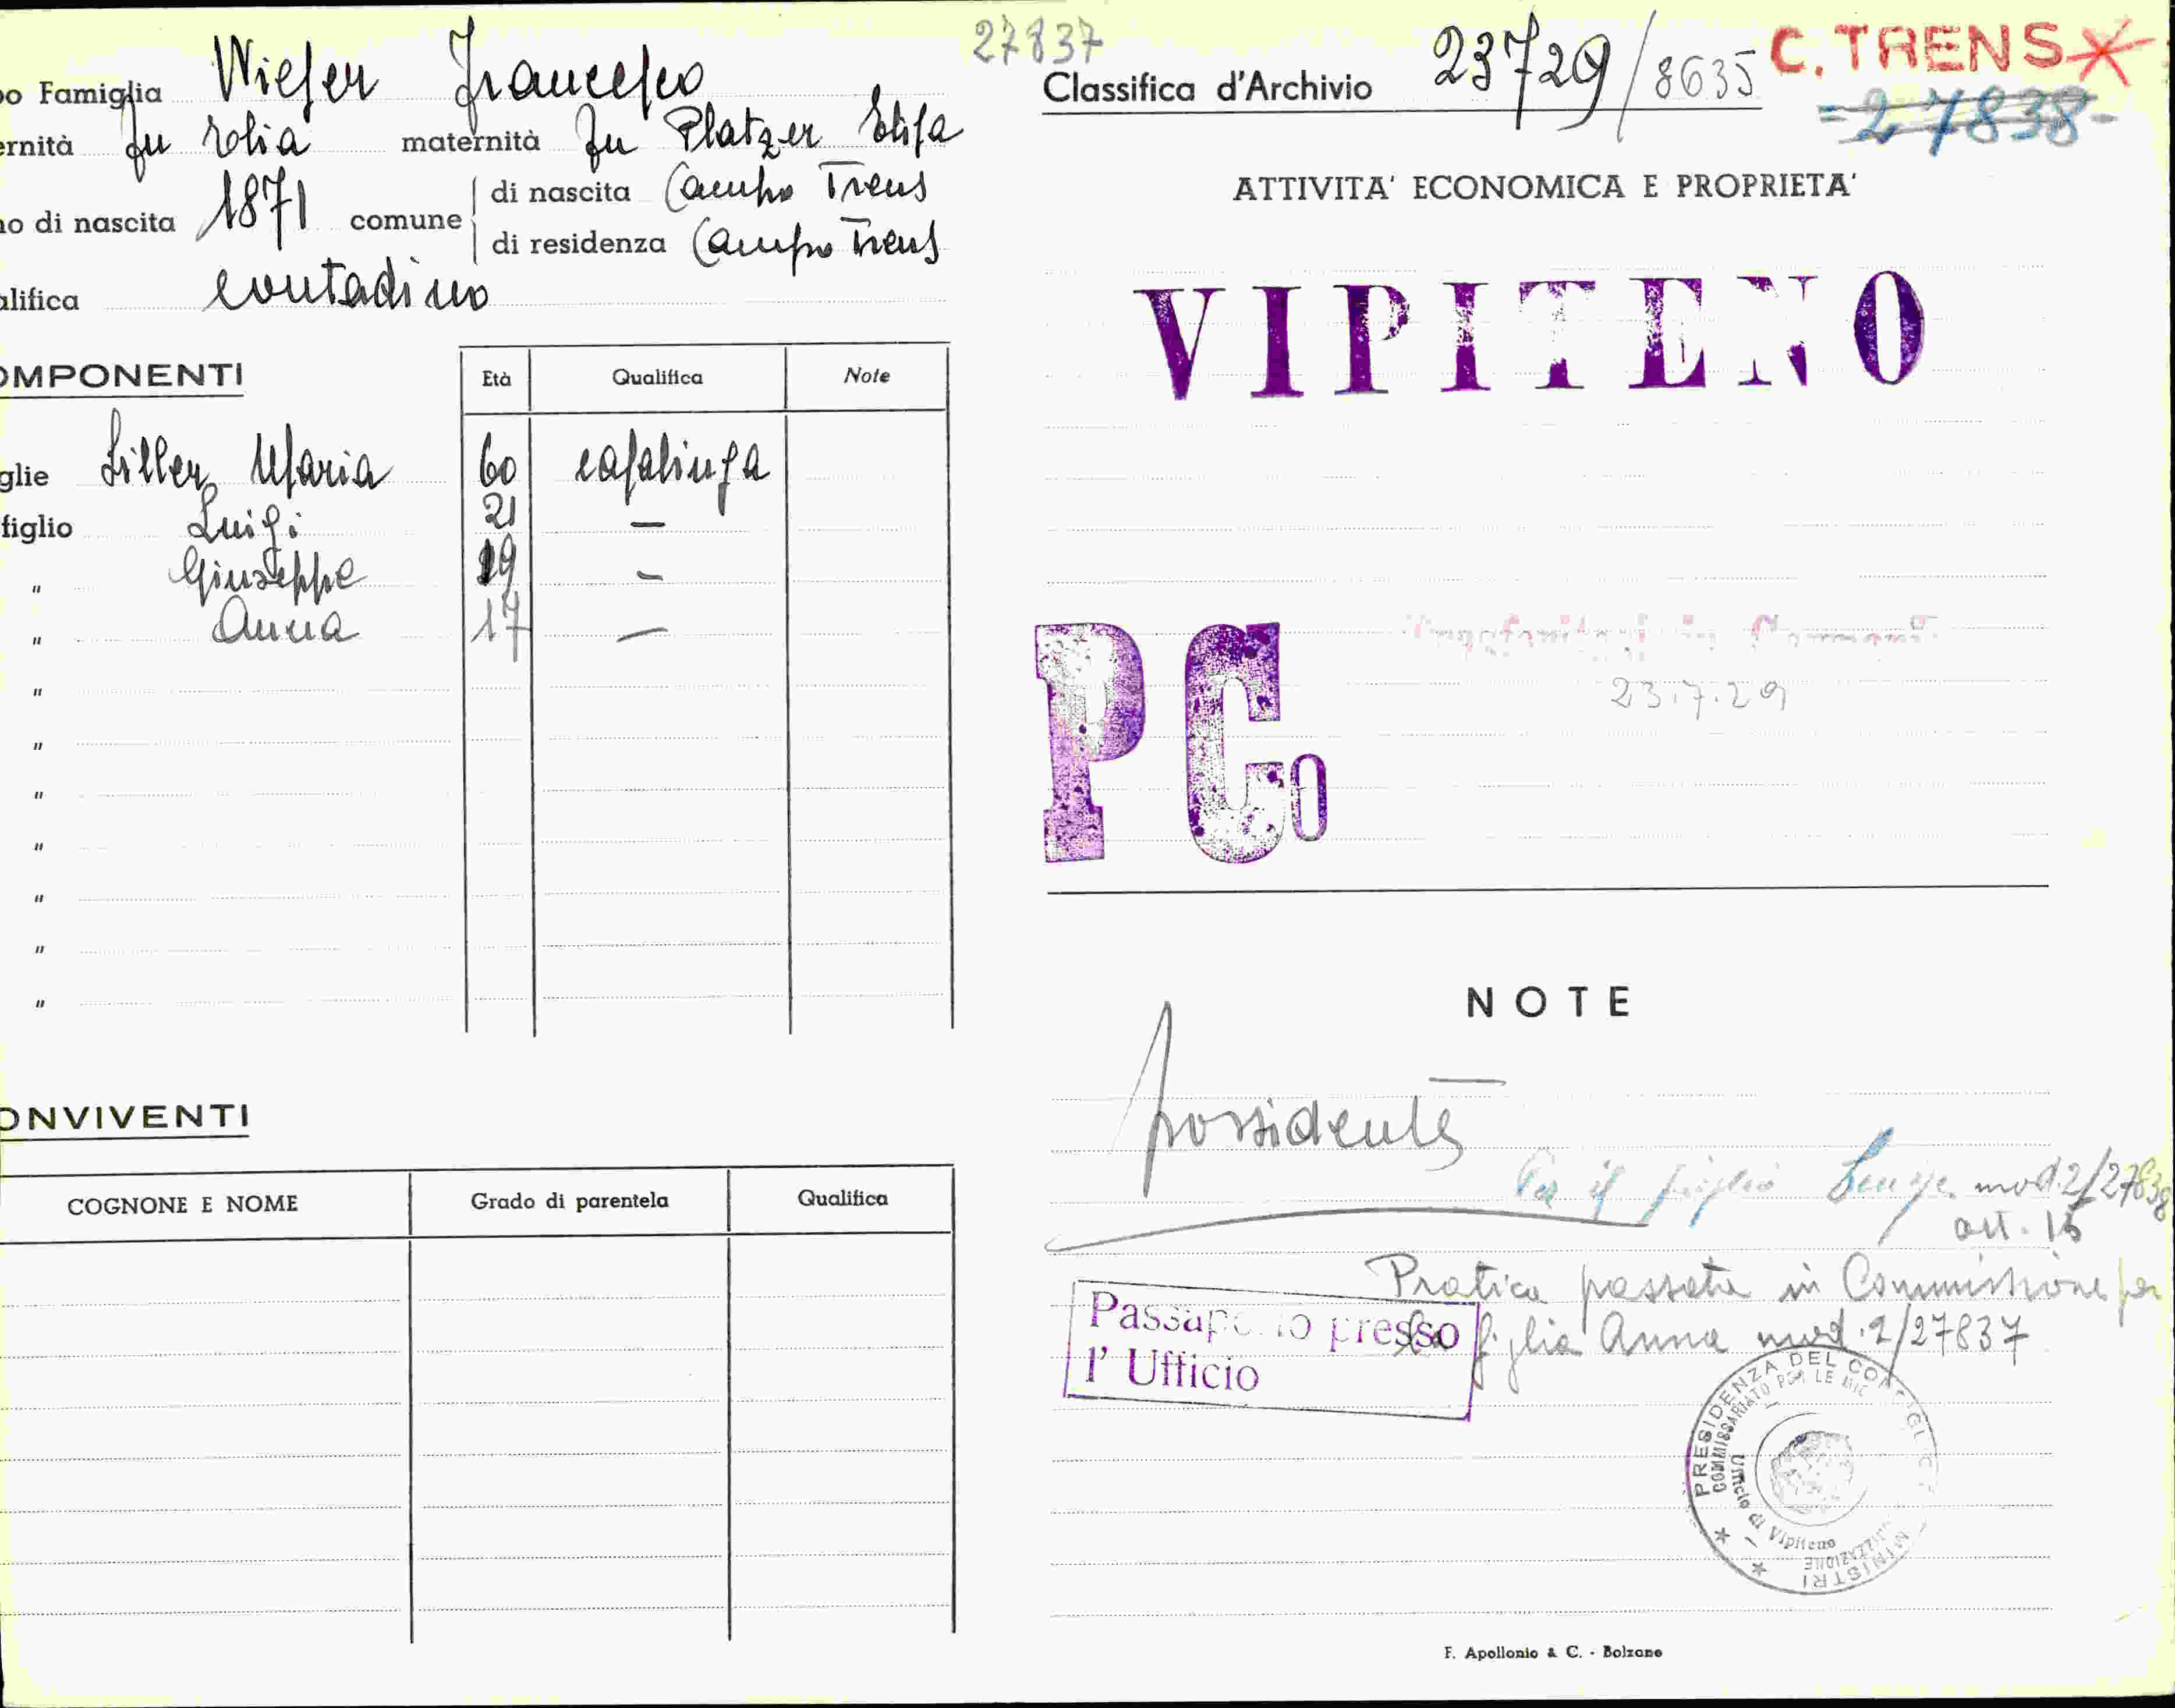 27837
o Famiglia Wieser Francesco
Classifica d'Archivio 23729/8635
C. TRENS
=27838-
rnità fu Elia maternità fu Platzer Elisa
ATTIVITA' ECONOMICA E PROPRIETA'
o di nascita 1871 comune di nascita Campo Trens
di residenza Campo Trens
alifica contadino
VIPITENO
OMPONENTI Età Qualifica Note
glie Siller Maria 60 casalinga
figlio Luigi 21 —
" Giuseppe 19 —
" Anna 17 —
"
"
"
"
"
"
"
PCo
23.7.29
NOTE
possidente
Per il figlio Luigi mod.2/27838
art. 15
Pratica passata in Commissione per
la figlia Anna mod.2/27837
Passaporto presso
l' Ufficio
PRESIDENZA DEL CONSIGLIO MINISTRI
COMMISSARIATO PER LE
Ufficio di Vipiteno
ONVIVENTI
COGNONE E NOME Grado di parentela Qualifica
F. Apollonio & C. - Bolzano